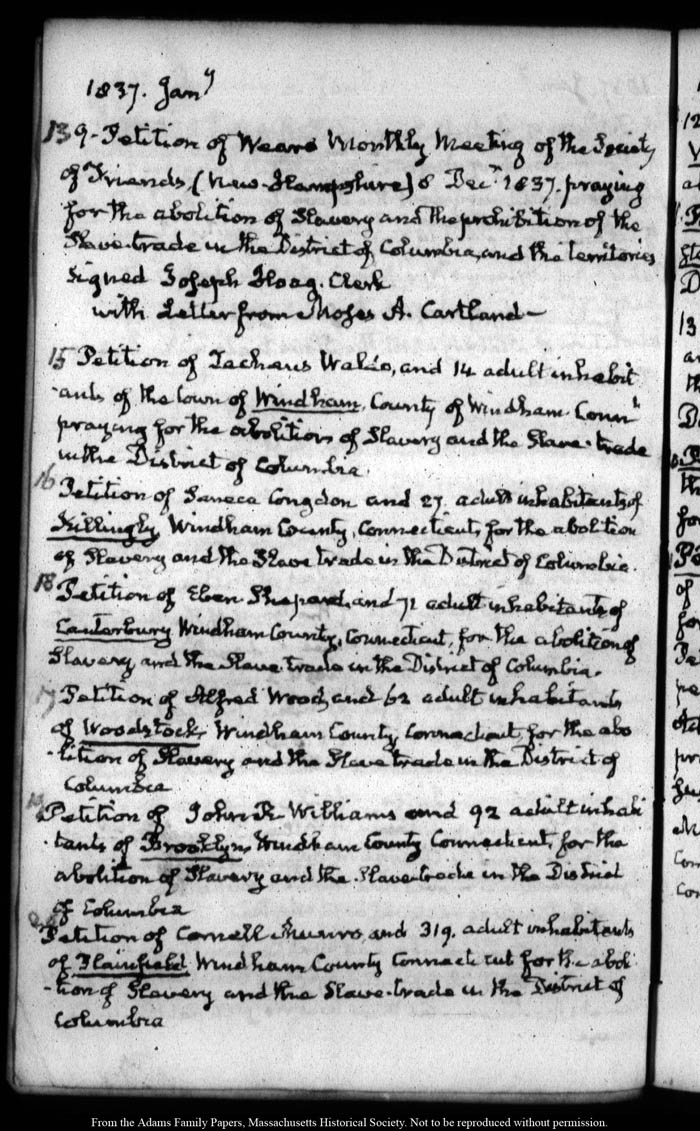 1837. Jany
139 - Petition of Weare Monthly Meeting of the Society
of Friends, (New-Hampshire) 8 Decr. 1837. praying
for the abolition of Slavery and the prohibition of the
Slave-trade in the District of Columbia, and the territories
signed Joseph Hoag. Clerk
with Letter from Moses A. Cartland —
15 Petition of Zacheus Waldo, and 14 adult inhabit
-ants of the town of Windham, County of Windham. Connt
praying for the abolition of Slavery and the Slave-trade
in the District of Columbia.
16 Petition of Seneca Congdon and 27. adult inhabitants of
Killingly Windham County, Connecticut, for the abolition
of Slavery and the Slave trade in the District of Columbia.
18 Petition of Eben Shepard, and 72 adult inhabitants of
Canterbury Windham County, Connecticut, for the abolition of
Slavery and the Slave-trade in the District of Columbia.
17 Petition of Alfred Wood, and 62 adult inhabitants
of Woodstock, Windham County Connecticut, for the abo
-lition of Slavery and the Slave trade in the District of
Columbia
Petition of John R Williams and 92 adult inhabi
-tants of Brooklyn, Windham County Connecticut, for the
abolition of Slavery and the Slave-trade in the District
of Columbia
Petition of Cornell Munro, and 319. adult inhabitants
of Plainfield Windham County Connecticut for the aboli
-tion of Slavery and the Slave-trade in the District of
Columbia
From the Adams Family Papers, Massachusetts Historical Society. Not to be reproduced without permission.